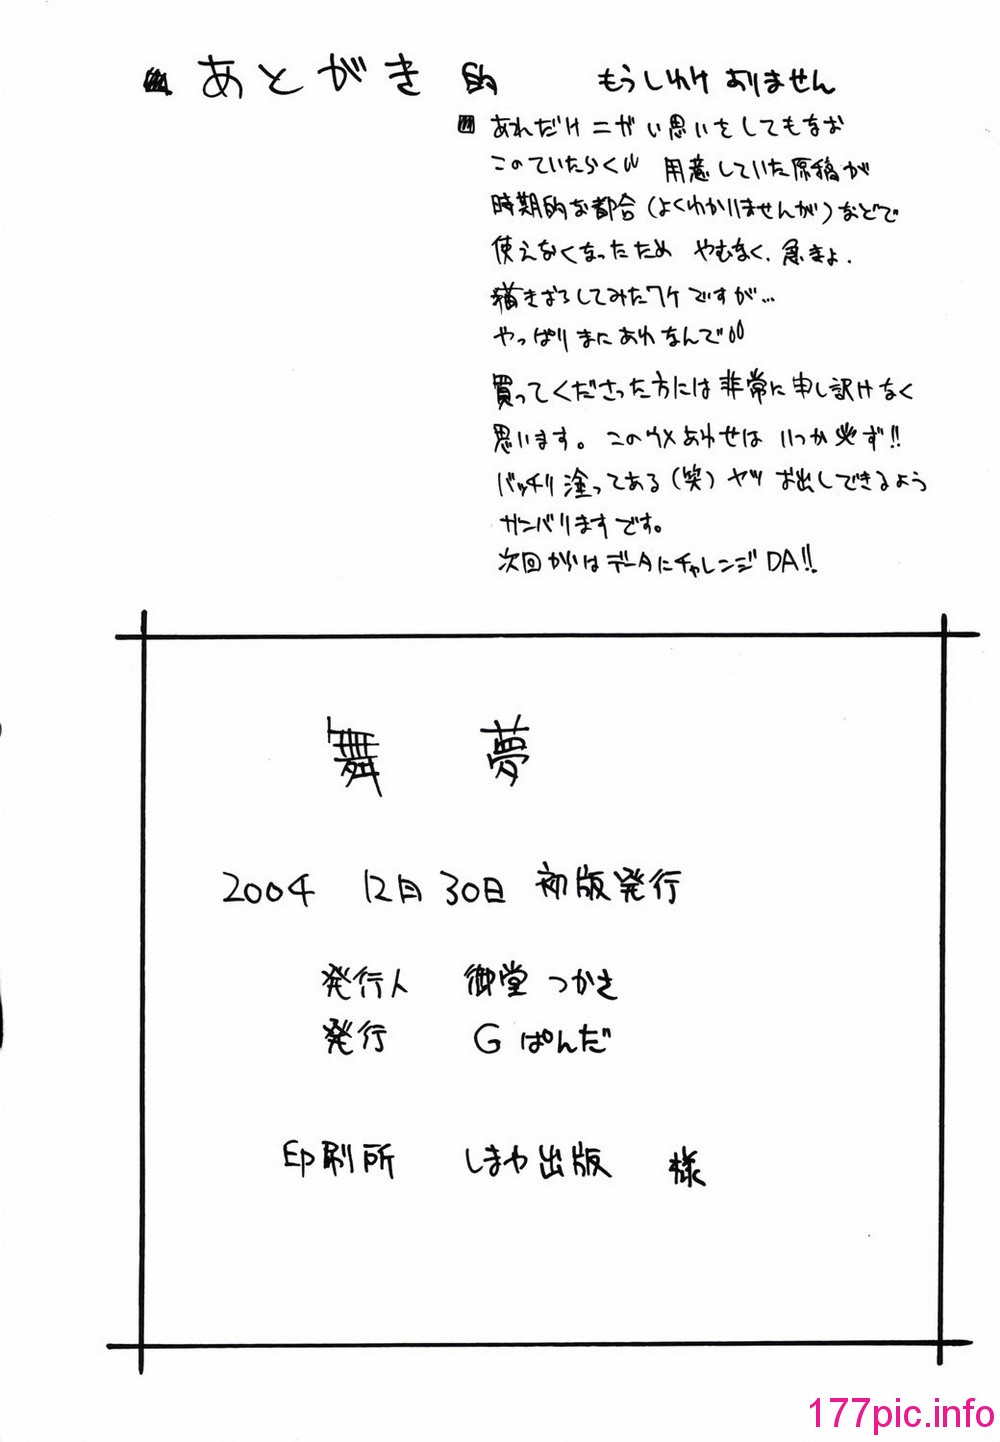 あとがき 的 もうしわけ ありません
あれだけニガい思いをしてもなお
このていたらく 用意していた原稿が
時期的な都合(よくわかりませんが)などで
使えなくなったため やむなく、急きょ、
描きおろしてみたワケですが…
やっぱりまにあわなんで
買ってくださった方には非常に申し訳けなく
思います。このウメあわせは いつか必ず!!
バッチリ塗ってある(笑)ヤツ お出しできるよう
ガンバリますです。
次回からはデータにチャレンジDA!!
舞 夢
2004 12月30日 初版発行
発行人 御堂つかさ
発行 Gぱんだ
印刷所 しまや出版 様
177pic.info